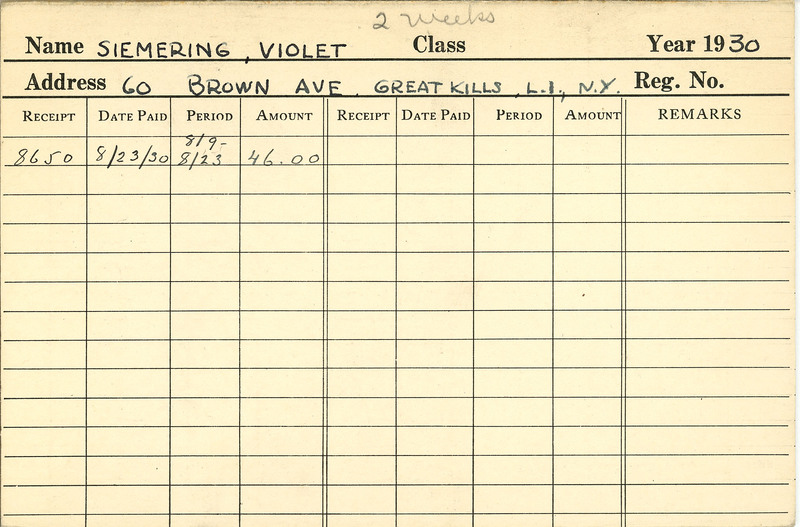 2 Weeks
Name SIEMERING, VIOLET Class Year 1930
Address 60 BROWN AVE. GREAT KILLS, L.I., N.Y. Reg. No.
RECEIPT DATE PAID PERIOD AMOUNT RECEIPT DATE PAID PERIOD AMOUNT REMARKS
8/9-
8650 8/23/30 8/23 46.00